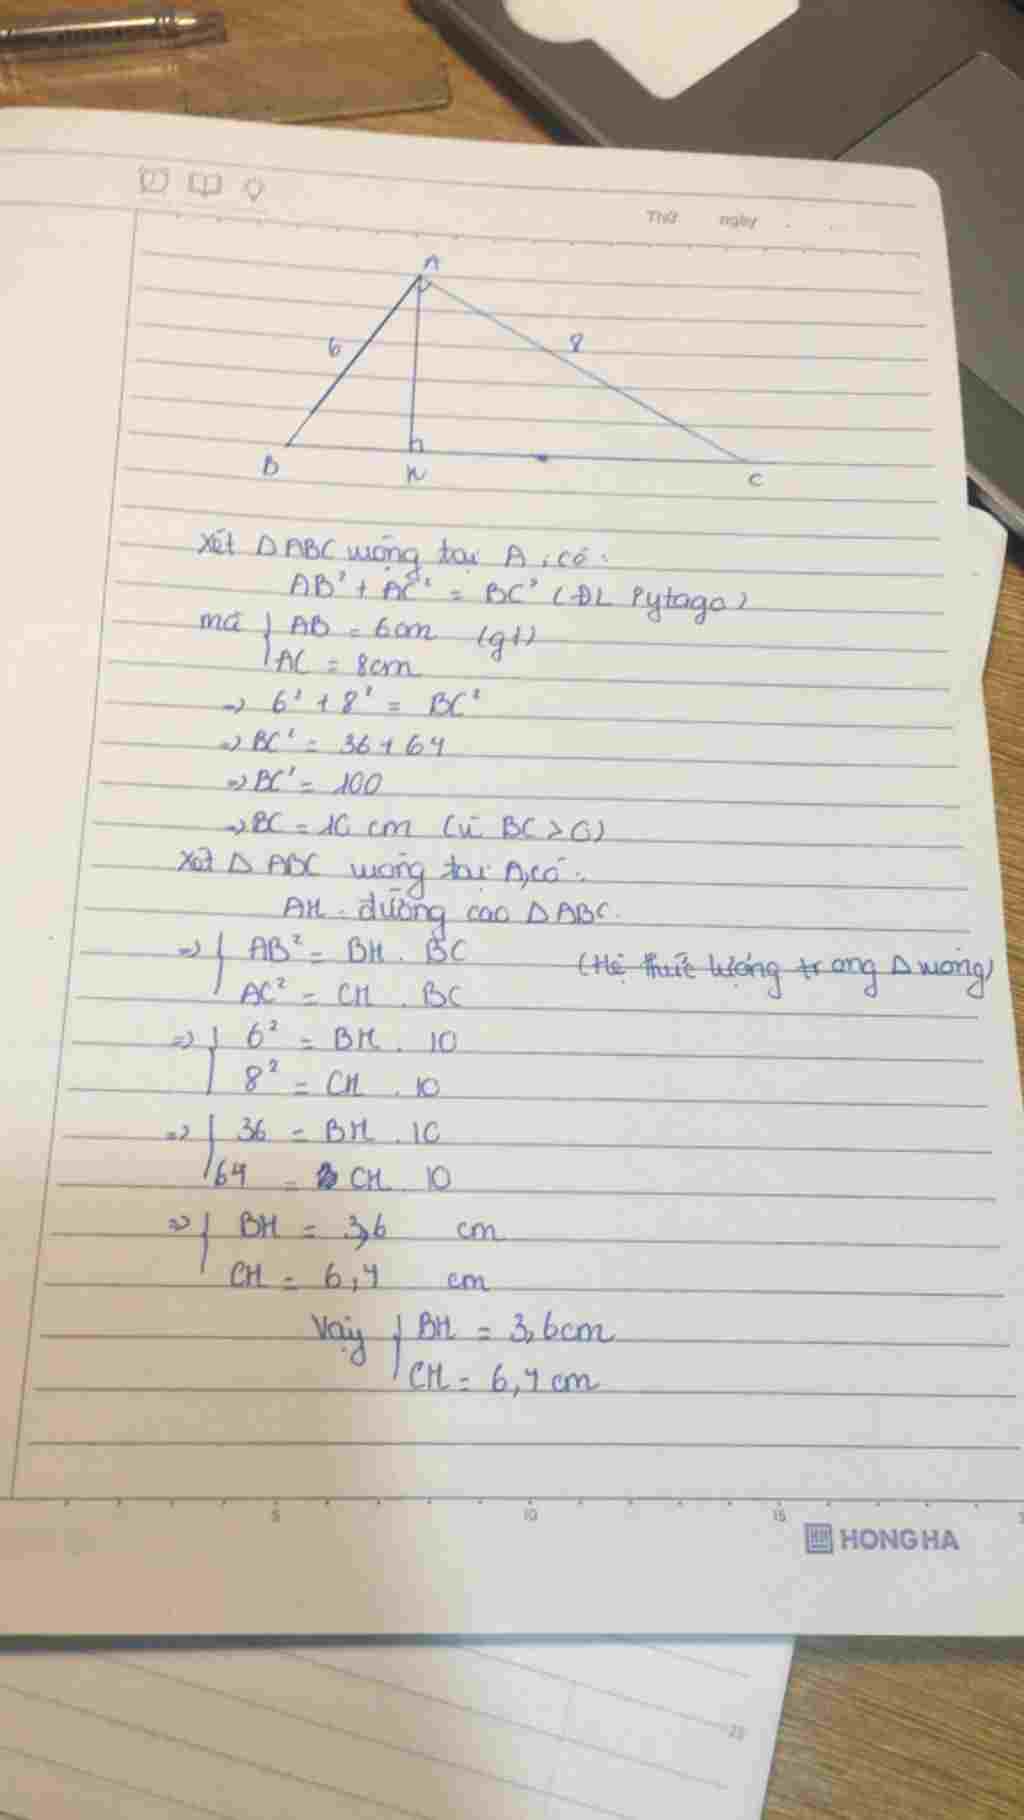 Thứ ngày
A
6 8
B H C
Xét △ABC vuông tại A, có:
AB² + AC² = BC² (ĐL Pytago)
mà { AB = 6cm (gt)
AC = 8cm
=> 6² + 8² = BC²
=> BC² = 36 + 64
=> BC² = 100
=> BC = 10 cm (vì BC > 0)
Xét △ ABC vuông tại A, có:
AH đường cao △ABC.
=> { AB² = BH . BC (Hệ thức lượng trong △ vuông)
AC² = CH . BC
=> { 6² = BH . 10
8² = CH . 10
=> { 36 = BH . 10
64 = CH . 10
=> { BH = 3,6 cm
CH = 6,4 cm
Vậy { BH = 3,6cm
CH = 6,4 cm
5 10 15
HH HONG HA
23